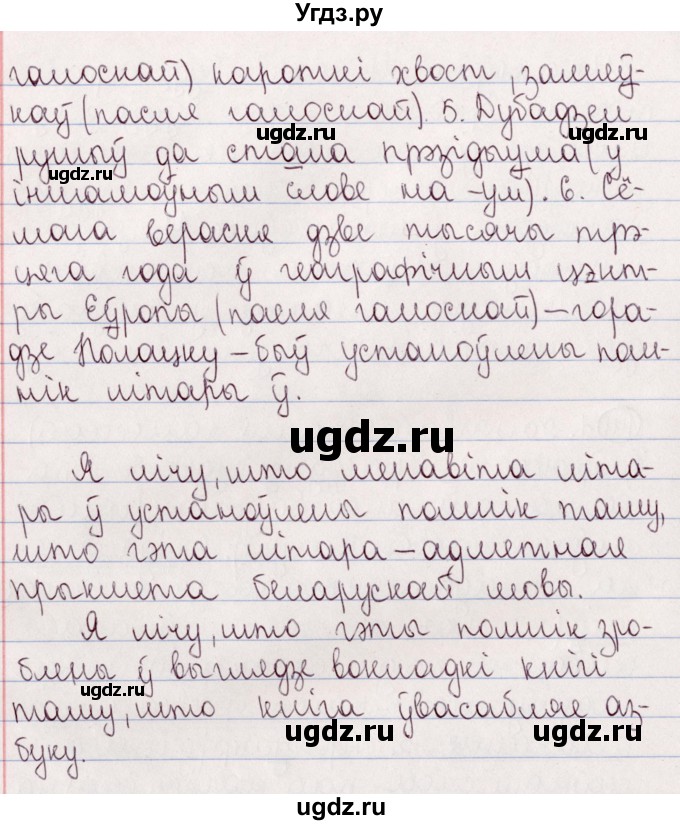 Угдз.ру
галоснай) кароткі хвост, замяў-
каў (пасля галоснай). 5. Дубадзел
рушыў да стала прэзідыума (у
іншамоўным слове на -ум). 6. Сё-
мага верасня дзве тысячы трэ-
цяга года ў геаграфічным цэнт-
ры Еўропы (пасля галоснай) – гора-
дзе Полацку – быў устаноўлены пом-
нік літары ў.
Я лічу, што менавіта літа-
ры ў устаноўлены помнік таму,
што гэта літара – адметная
прыкмета беларускай мовы.
Я лічу, што гэты помнік зро-
блены ў выглядзе вокладкі кнігі
таму, што кніга ўвасабляе аз-
буку.
ugdz.ru
ugdz.ru
ugdz.ru
ugdz.ru
ugdz.ru
ugdz.ru
ugdz.ru
ugdz.ru
ugdz.ru
ugdz.ru